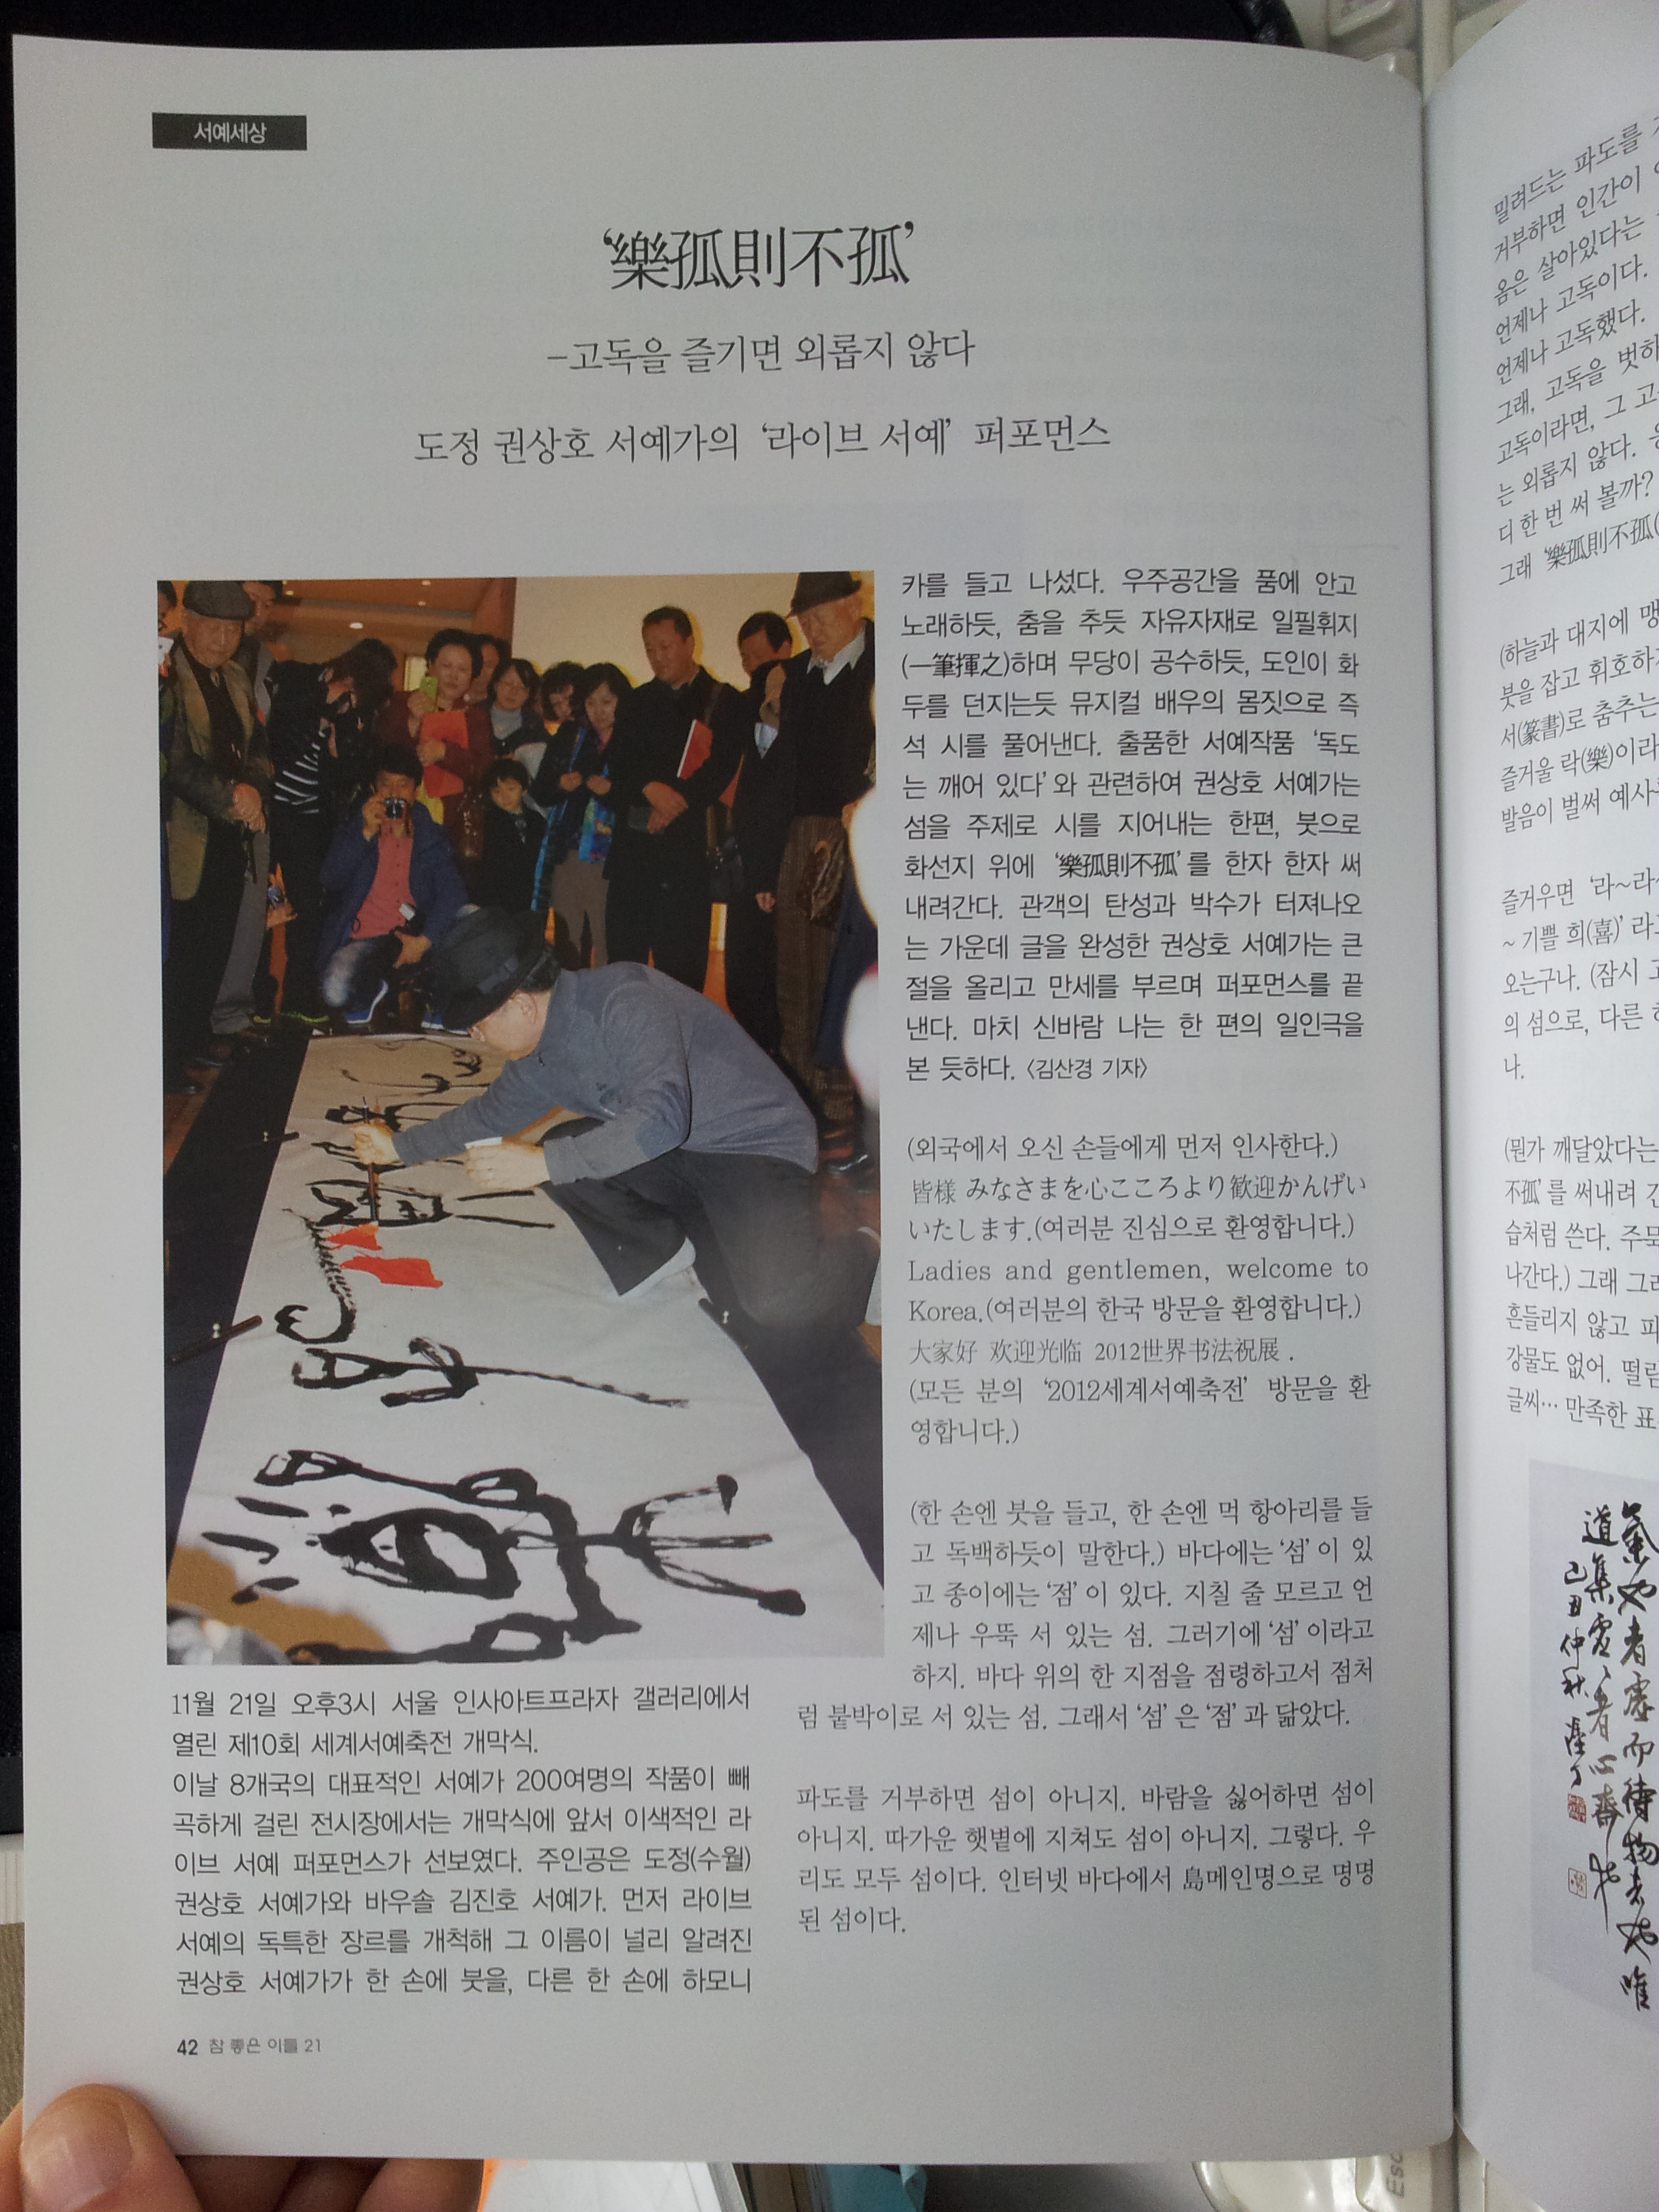 서예세상
‘樂孤則不孤’
-고독을 즐기면 외롭지 않다
도정 권상호 서예가의 ‘라이브 서예’ 퍼포먼스
11월 21일 오후3시 서울 인사아트프라자 갤러리에서
열린 제10회 세계서예축전 개막식.
이날 8개국의 대표적인 서예가 200여명의 작품이 빼
곡하게 걸린 전시장에서는 개막식에 앞서 이색적인 라
이브 서예 퍼포먼스가 선보였다. 주인공은 도정(수월)
권상호 서예가와 바우솔 김진호 서예가. 먼저 라이브
서예의 독특한 장르를 개척해 그 이름이 널리 알려진
권상호 서예가가 한 손에 붓을, 다른 한 손에 하모니
카를 들고 나섰다. 우주공간을 품에 안고
노래하듯, 춤을 추듯 자유자재로 일필휘지
(一筆揮之)하며 무당이 공수하듯, 도인이 화
두를 던지는듯 뮤지컬 배우의 몸짓으로 즉
석 시를 풀어낸다. 출품한 서예작품 ‘독도
는 깨어 있다’와 관련하여 권상호 서예가는
섬을 주제로 시를 지어내는 한편, 붓으로
화선지 위에 ‘樂孤則不孤’를 한자 한자 써
내려간다. 관객의 탄성과 박수가 터져나오
는 가운데 글을 완성한 권상호 서예가는 큰
절을 올리고 만세를 부르며 퍼포먼스를 끝
낸다. 마치 신바람 나는 한 편의 일인극을
본 듯하다. <김산경 기자>
(외국에서 오신 손들에게 먼저 인사한다.)
皆様 みなさまを心こころより歓迎かんげい
いたします.(여러분 진심으로 환영합니다.)
Ladies and gentlemen, welcome to
Korea.(여러분의 한국 방문을 환영합니다.)
大家好 欢迎光临 2012世界书法祝展 .
(모든 분의 ‘2012세계서예축전’ 방문을 환
영합니다.)
(한 손엔 붓을 들고, 한 손엔 먹 항아리를 들
고 독백하듯이 말한다.) 바다에는 ‘섬’이 있
고 종이에는 ‘점’이 있다. 지칠 줄 모르고 언
제나 우뚝 서 있는 섬. 그러기에 ‘섬’이라고
하지. 바다 위의 한 지점을 점령하고서 점처
럼 붙박이로 서 있는 섬. 그래서 ‘섬’은 ‘점’과 닮았다.
파도를 거부하면 섬이 아니지. 바람을 싫어하면 섬이
아니지. 따가운 햇볕에 지쳐도 섬이 아니지. 그렇다. 우
리도 모두 섬이다. 인터넷 바다에서 島메인명으로 명명
된 섬이다.
42 참 좋은 이들 21
밀려드는 파도를
거부하면 인간이
옴은 살아있다는
언제나 고독이다.
언제나 고독했다.
그래, 고독을 벗하
고독이라면, 그 고
는 외롭지 않다.
디 한 번 써 볼까?
그래 ‘樂孤則不孤(
(하늘과 대지에 맹
붓을 잡고 휘호하
서(篆書)로 춤추는
즐거울 락(樂)이라
발음이 벌써 예사
즐거우면 ‘라~라
~ 기쁠 희(喜)’라
오는구나. (잠시
의 섬으로, 다른
나.
(뭔가 깨달았다는
不孤’를 써내려 간
습처럼 쓴다. 주묵
나간다.) 그래 그
흔들리지 않고 파
강물도 없어. 떨림
글씨… 만족한 표
氣也者虛而待物者也唯
道集虛虛者心齋也
己丑仲秋